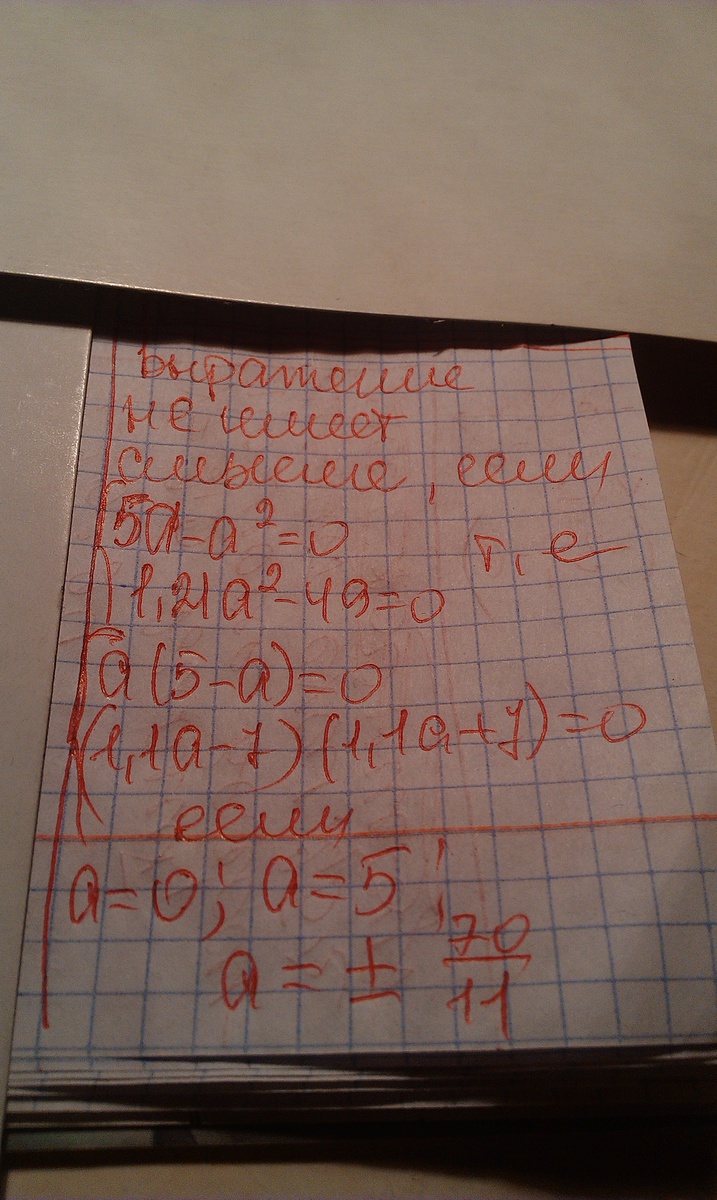 выражение
не имеет
смысле, если
5a-a²=0 т, е
1,21a²-49=0
a(5-a)=0
(1,1a-7)(1,1a+7)=0
если
a=0; a=5;
a=± 70/11